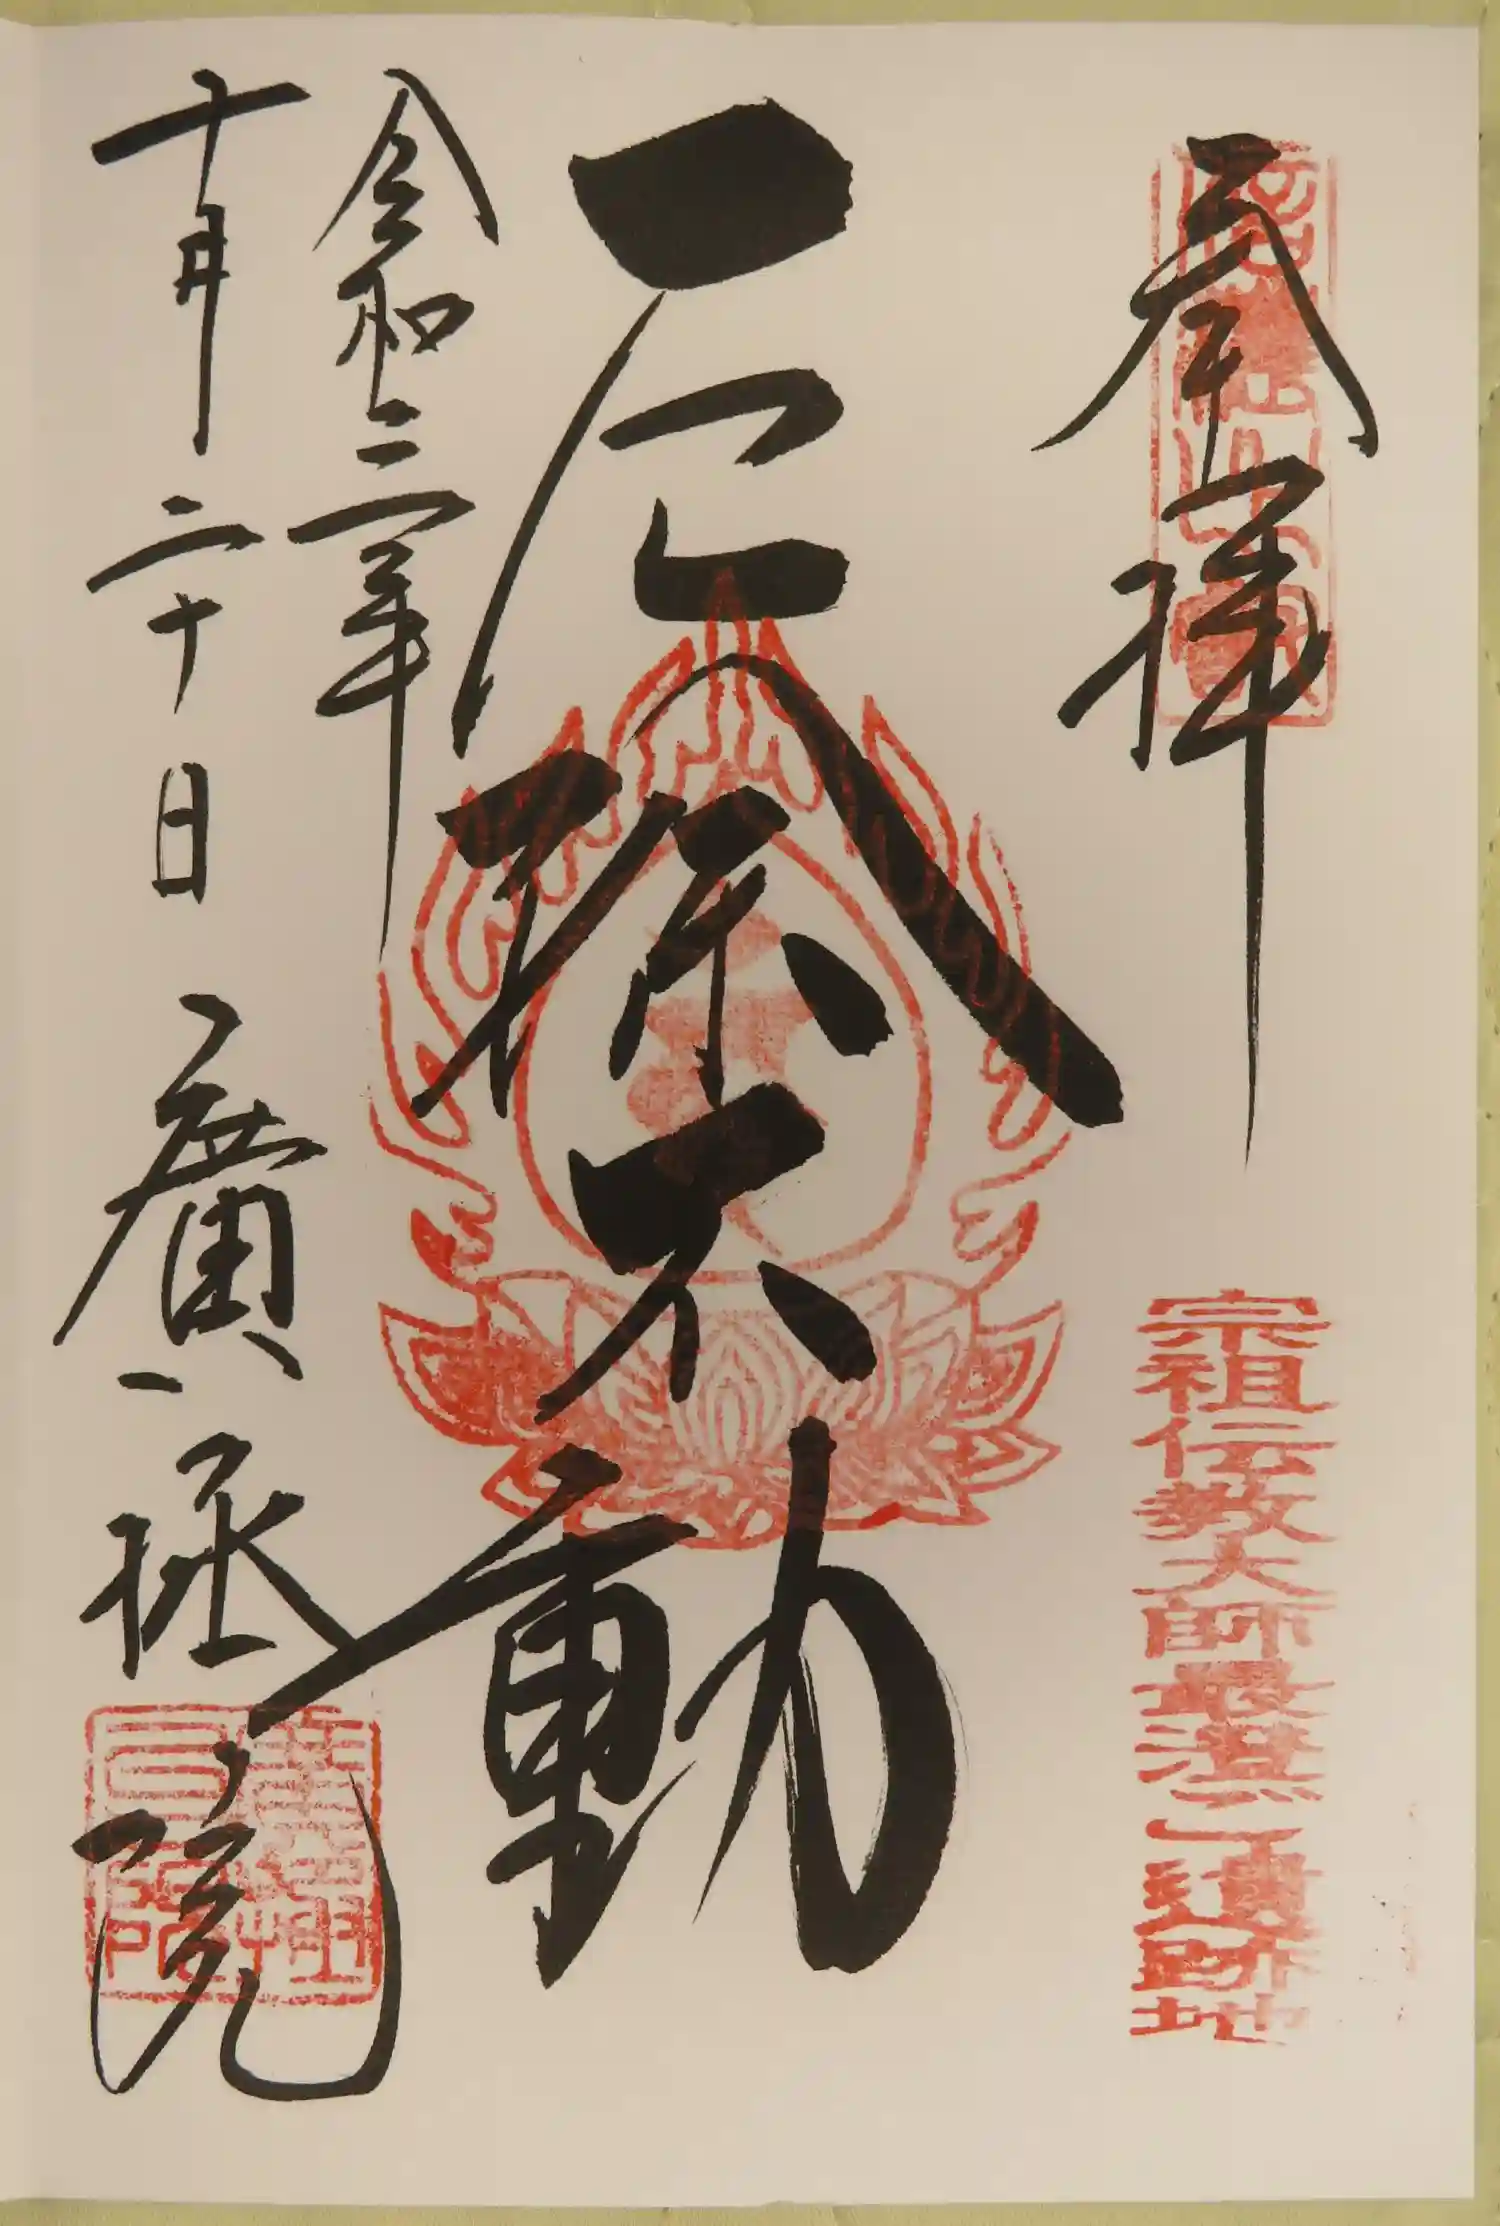 奉拝
宗祖伝教大師最澄ご遺跡地
厄除不動
令和三年
十月二十日 廣拯院